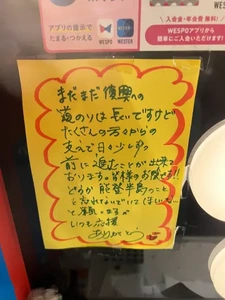 アプリの提示で
たまる・つかえる
WESPO
WESTER
入会金・年会費 無料!
WESPOアプリから
簡単にご入会いただけます!
まだまだ復興への
道のりは長いですけど
たくさんの方々からの
支えで日々少しずつ
前に進むことが出来て
おります。皆様のお陰です!!
どうか能登半島のこと
を忘れないでいてほしいな
と願います
いつも応援
ありがとう